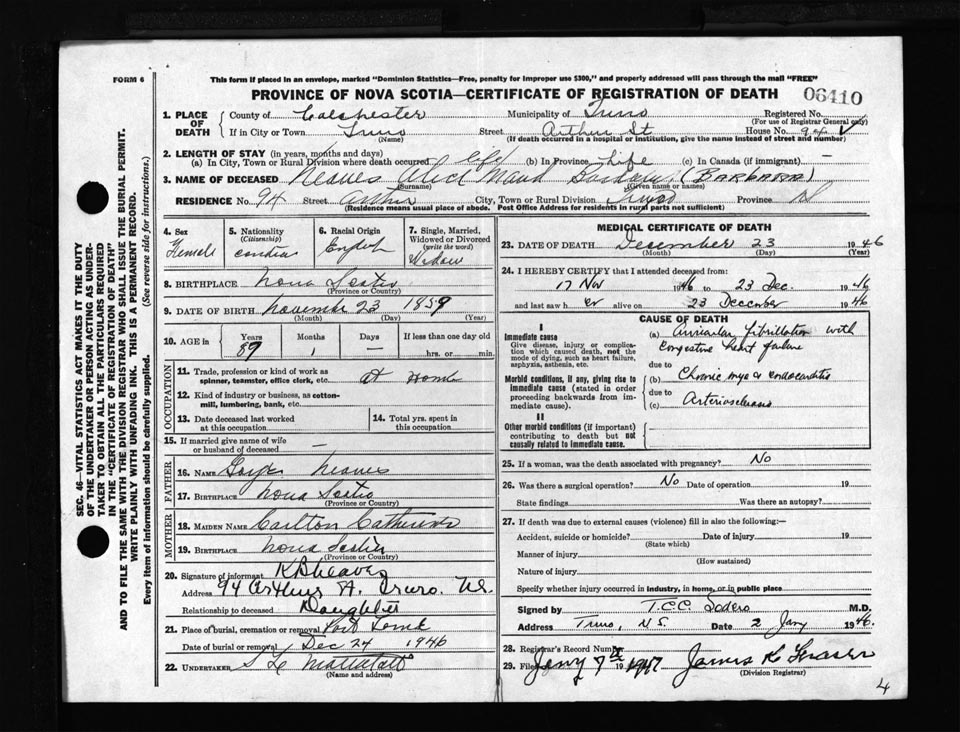 FORM 6
This form if placed in an envelope, marked "Dominion Statistics—Free, penalty for improper use $300," and properly addressed will pass through the mail "FREE"
PROVINCE OF NOVA SCOTIA—CERTIFICATE OF REGISTRATION OF DEATH
06410
1. PLACE OF DEATH
County of Colchester Municipality of Truro Registered No.
(For use of Registrar General only)
If in City or Town Truro Street Arthur St House No. 94
(Name) (If death occurred in a hospital or institution, give the name instead of street and number)
2. LENGTH OF STAY (in years, months and days)
(a) In City, Town or Rural Division where death occurred life (b) In Province Life (c) In Canada (if immigrant) —
3. NAME OF DECEASED Alice Maud (BARBARA)
(Surname) (Given name or names)
RESIDENCE No. 94 Street Arthur City, Town or Rural Division Truro Province
(Residence means usual place of abode. Post Office Address for residents in rural parts not sufficient)
4. Sex
Female
5. Nationality
(Citizenship)
6. Racial Origin
English
7. Single, Married, Widowed or Divorced
(write the word)
Widow
8. BIRTHPLACE Nova Scotia
(Province or Country)
9. DATE OF BIRTH November 23 1859
(Month) (Day) (Year)
10. AGE in
Years Months Days If less than one day old
1 — hrs. or min.
OCCUPATION
11. Trade, profession or kind of work as spinner, teamster, office clerk, etc. at Home
12. Kind of industry or business, as cotton-mill, lumbering, bank, etc.
13. Date deceased last worked at this occupation
14. Total yrs. spent in this occupation
15. If married give name of wife or husband of deceased —
FATHER
16. NAME
17. BIRTHPLACE Nova Scotia
(Province or Country)
MOTHER
18. MAIDEN NAME Carlton
19. BIRTHPLACE Nova Scotia
(Province or Country)
20. Signature of informant
Address 94 Arthur St. Truro. N.S.
Relationship to deceased Daughter
21. Place of burial, cremation or removal
Date of burial or removal Dec 24 1946
22. UNDERTAKER
(Name and address)
MEDICAL CERTIFICATE OF DEATH
23. DATE OF DEATH December 23 1946
(Month) (Day) (Year)
24. I HEREBY CERTIFY that I attended deceased from:
17 Nov 1946 to 23 Dec. 1946
and last saw h er alive on 23 December 1946
CAUSE OF DEATH
I
Immediate cause
Give disease, injury or complication which caused death, not the mode of dying, such as heart failure, asphyxia, asthenia, etc.
(a) Auricular fibrillation with
congestive heart failure
due to
Morbid conditions, if any, giving rise to immediate cause (stated in order proceeding backwards from immediate cause).
(b) Chronic myo & endocarditis
due to
(c) Arteriosclerosis
II
Other morbid conditions (if important) contributing to death but not causally related to immediate cause.
25. If a woman, was the death associated with pregnancy? No
26. Was there a surgical operation? No Date of operation 19
State findings Was there an autopsy?
27. If death was due to external causes (violence) fill in also the following:—
Accident, suicide or homicide? Date of injury 19
(State which)
Manner of injury
(How sustained)
Nature of injury
Specify whether injury occurred in industry, in home, or in public place
Signed by T.C.C. Sodero M.D.
Address Truro, N.S. Date 2 Jany 1946.
28. Registrar's Record Number
29. Filed Jany 7th 1947
(Division Registrar)
4
SEC. 46—VITAL STATISTICS ACT MAKES IT THE DUTY
OF THE UNDERTAKER OR PERSON ACTING AS UNDER-
TAKER TO OBTAIN ALL THE PARTICULARS REQUIRED
IN THE "CERTIFICATE OF REGISTRATION OF DEATH"
AND TO FILE THE SAME WITH THE DIVISION REGISTRAR WHO SHALL ISSUE THE BURIAL PERMIT.
WRITE PLAINLY WITH UNFADING INK. THIS IS A PERMANENT RECORD.
Every item of information should be carefully supplied. (See reverse side for instructions.)